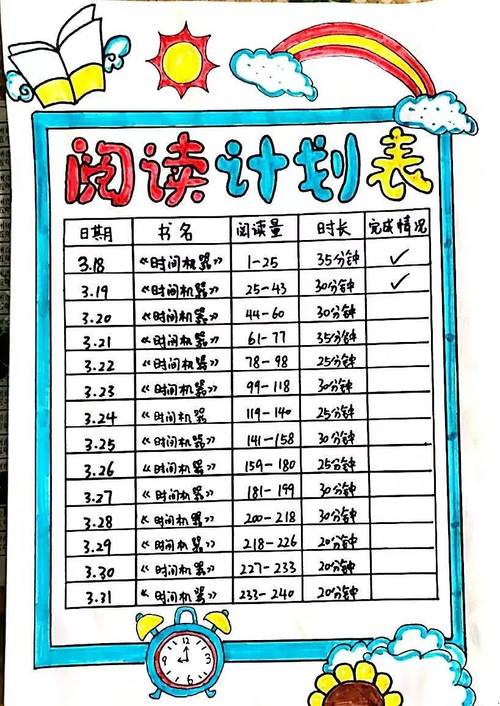 阅读计划表
日期 书名 阅读量 时长 完成情况
3.18 《时间机器》 1-25 35分钟 ✓
3.19 《时间机器》 25-43 30分钟 ✓
3.20 《时间机器》 44-60 30分钟
3.21 《时间机器》 61-77 35分钟
3.22 《时间机器》 78-98 25分钟
3.23 《时间机器》 99-118 30分钟
3.24 《时间机器》 119-140 25分钟
3.25 《时间机器》 141-158 30分钟
3.26 《时间机器》 159-180 25分钟
3.27 《时间机器》 181-199 30分钟
3.28 《时间机器》 200-218 30分钟
3.29 《时间机器》 218-226 20分钟
3.30 《时间机器》 227-233 20分钟
3.31 《时间机器》 233-240 20分钟
12
3
6
9